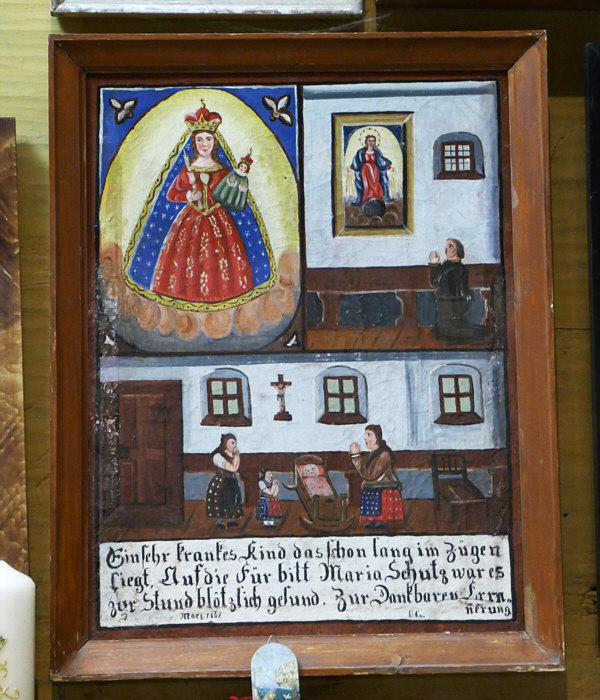 Ein sehr krankes Kind das schon lang im Zügen
liegt, Auf die Für bitt Maria Schutz war es
zur Stund blötzlich gesund. Zur Dankbaren Erin-
nerung